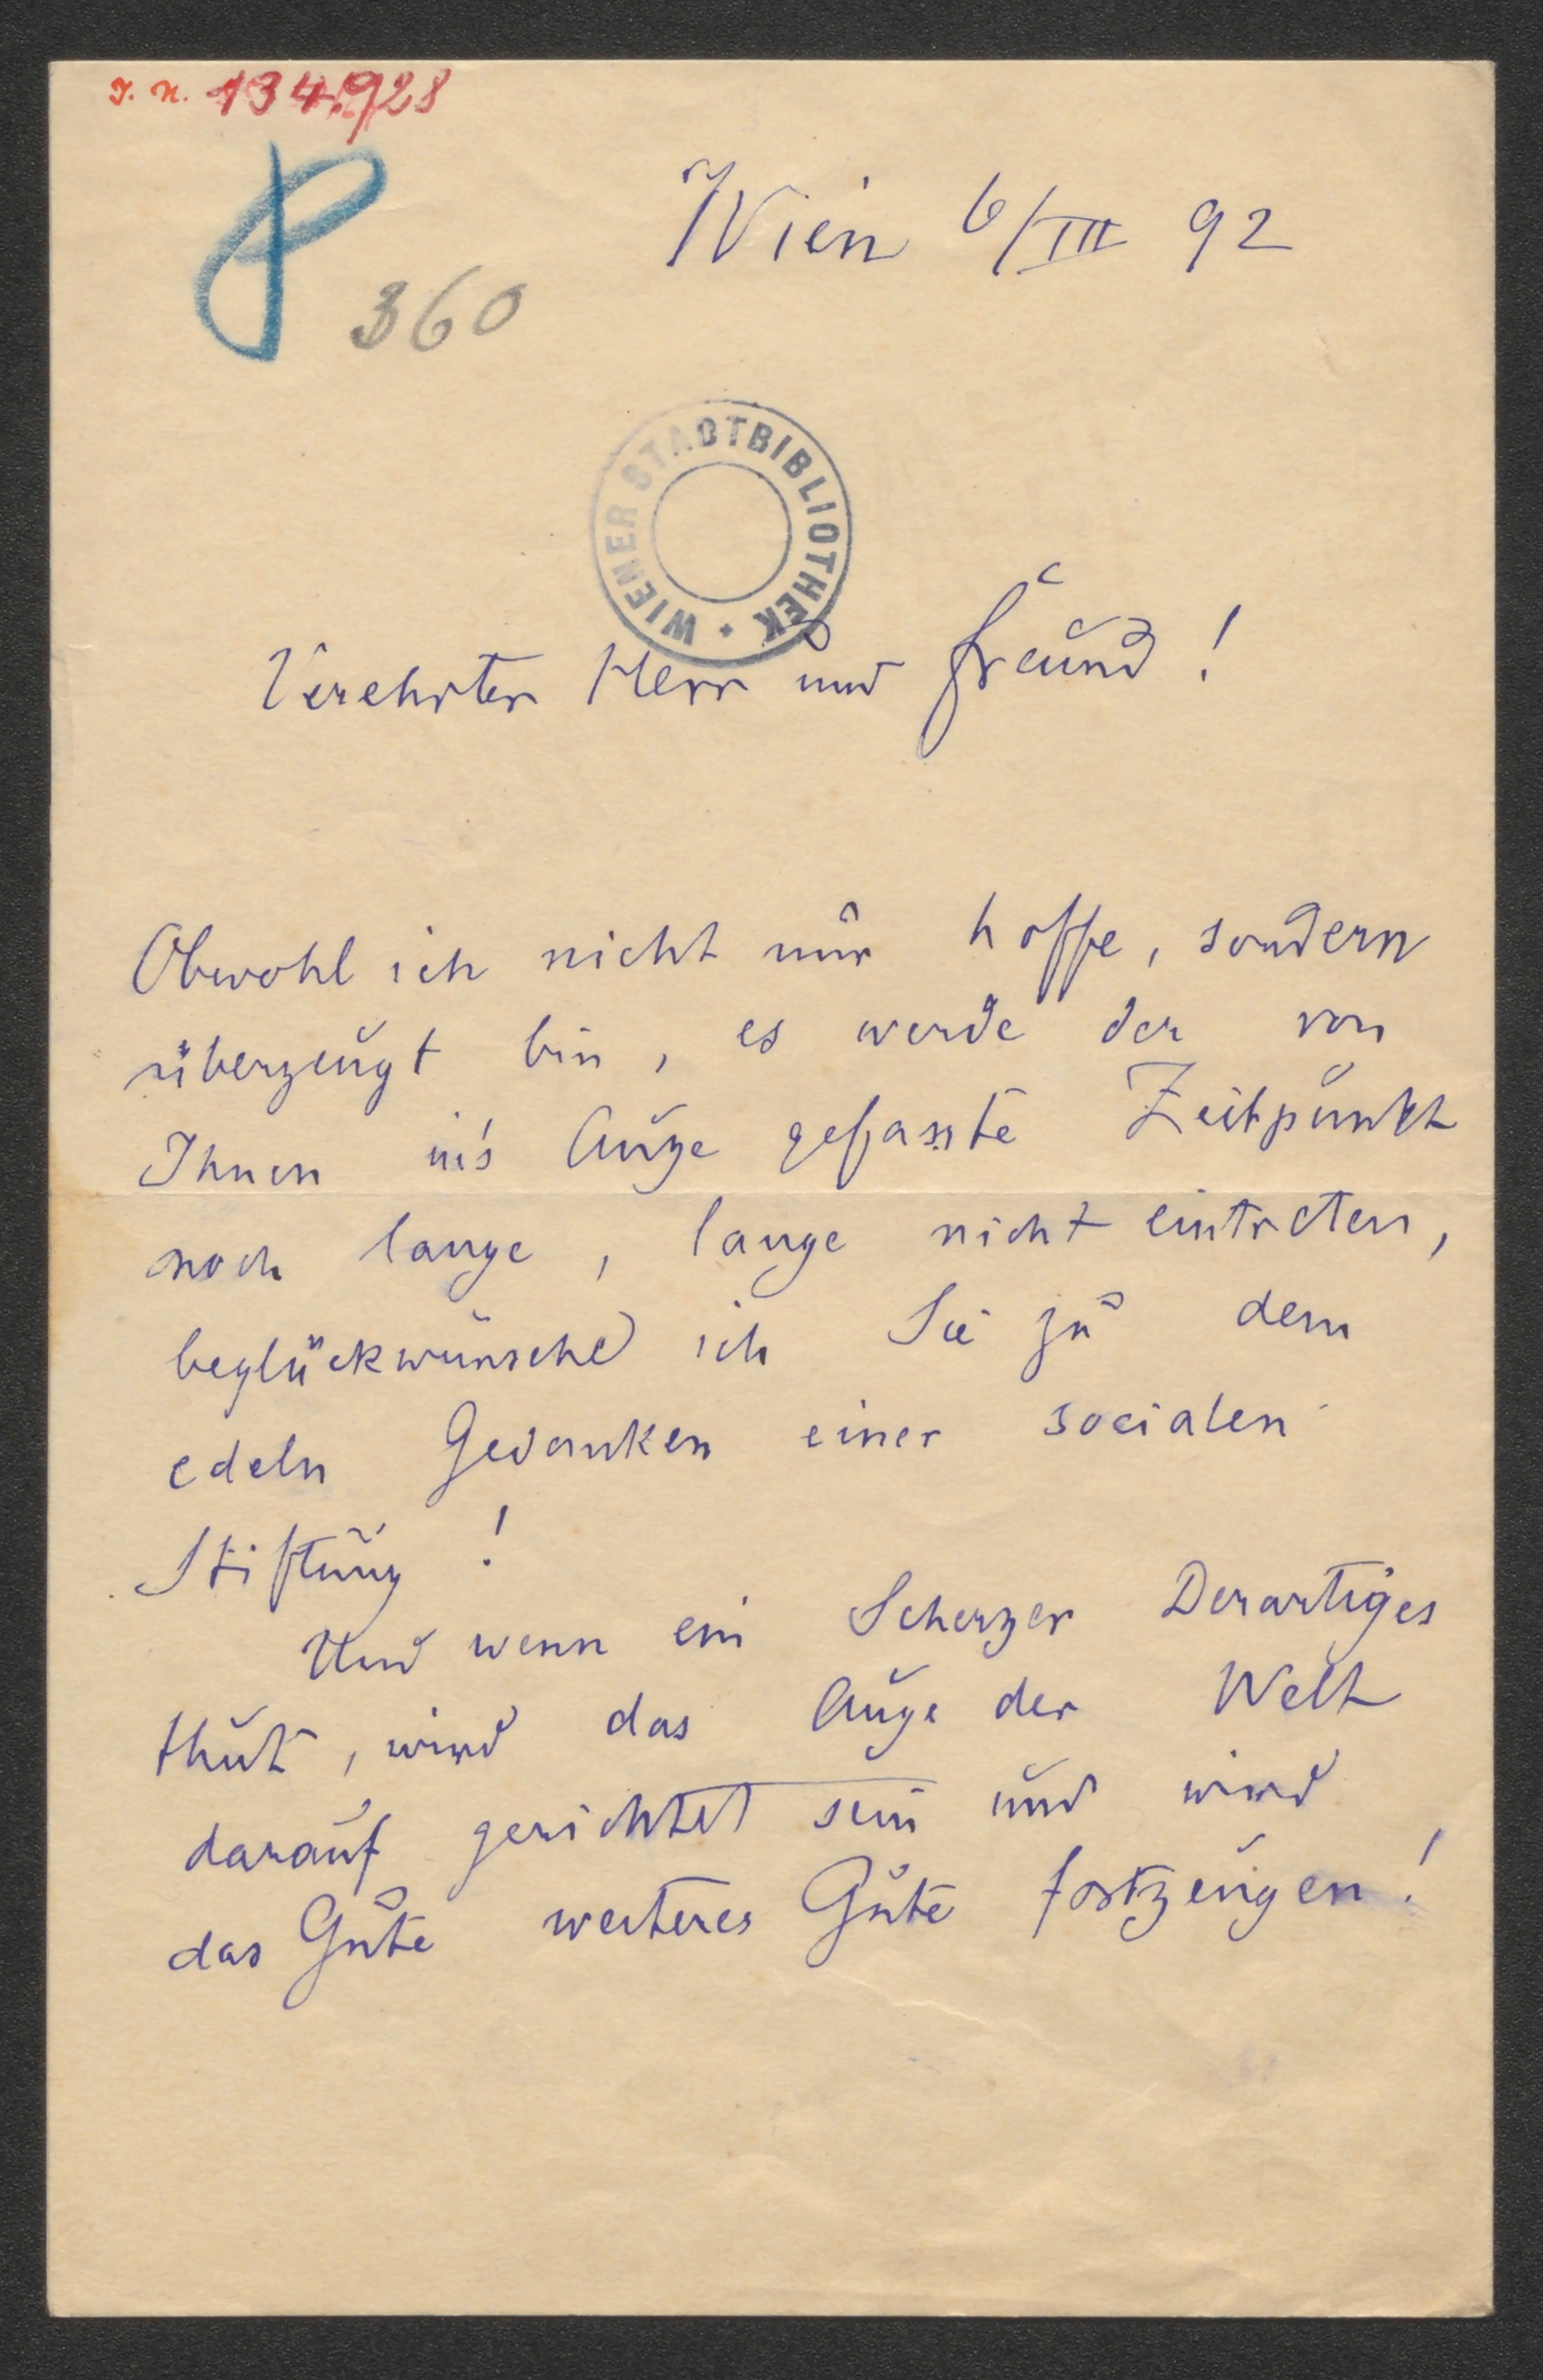 I. N. 134.928
360
Wien 6/III 92
WIENER STADTBIBLIOTHEK
Verehrter Herr und Freund!
Obwohl ich nicht nur hoffe, sondern
überzeugt bin, es werde der von
Ihnen in's Auge gefasste Zeitpunkt
noch lange, lange nicht eintreten,
beglückwünsche ich Sie zu dem
edeln Gedanken einer socialen
Stiftung!
Und wenn ein Scherzer Derartiges
thut, wird das Auge der Welt
darauf gerichtet sein und wird
das Gute weiteres Gute fortzeugen!